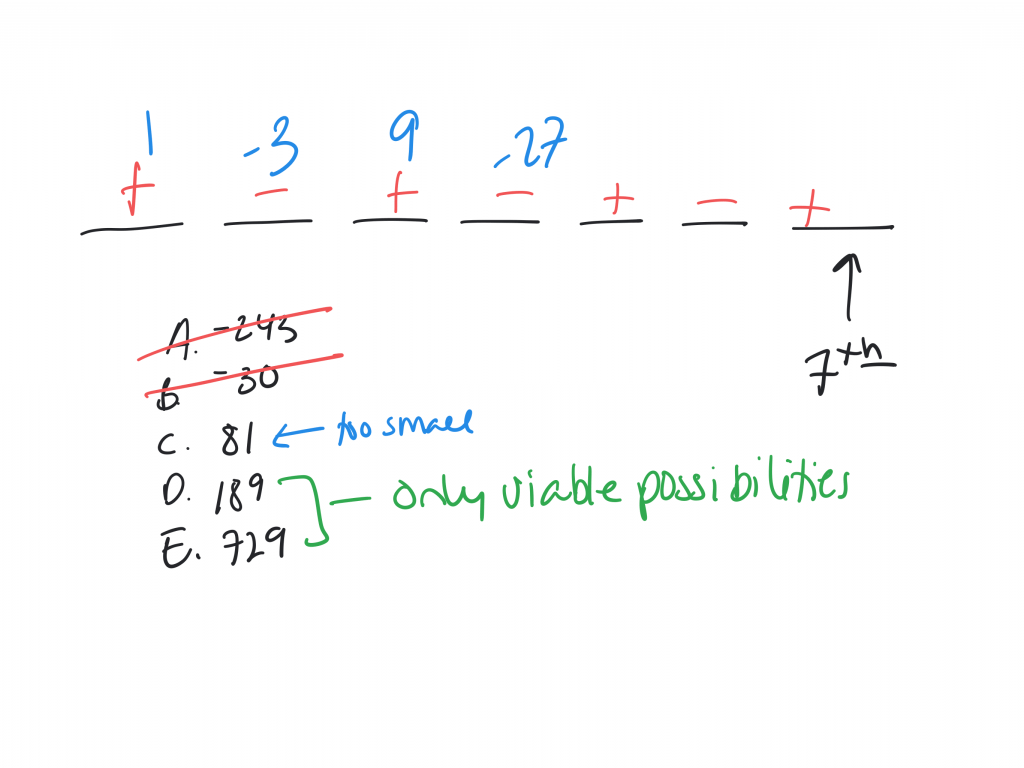 1 -3 9 -27
+ − + − + − +
7th
A. -243
B. -30
C. 81 ← too small
D. 189
E. 729
— only viable possibilities